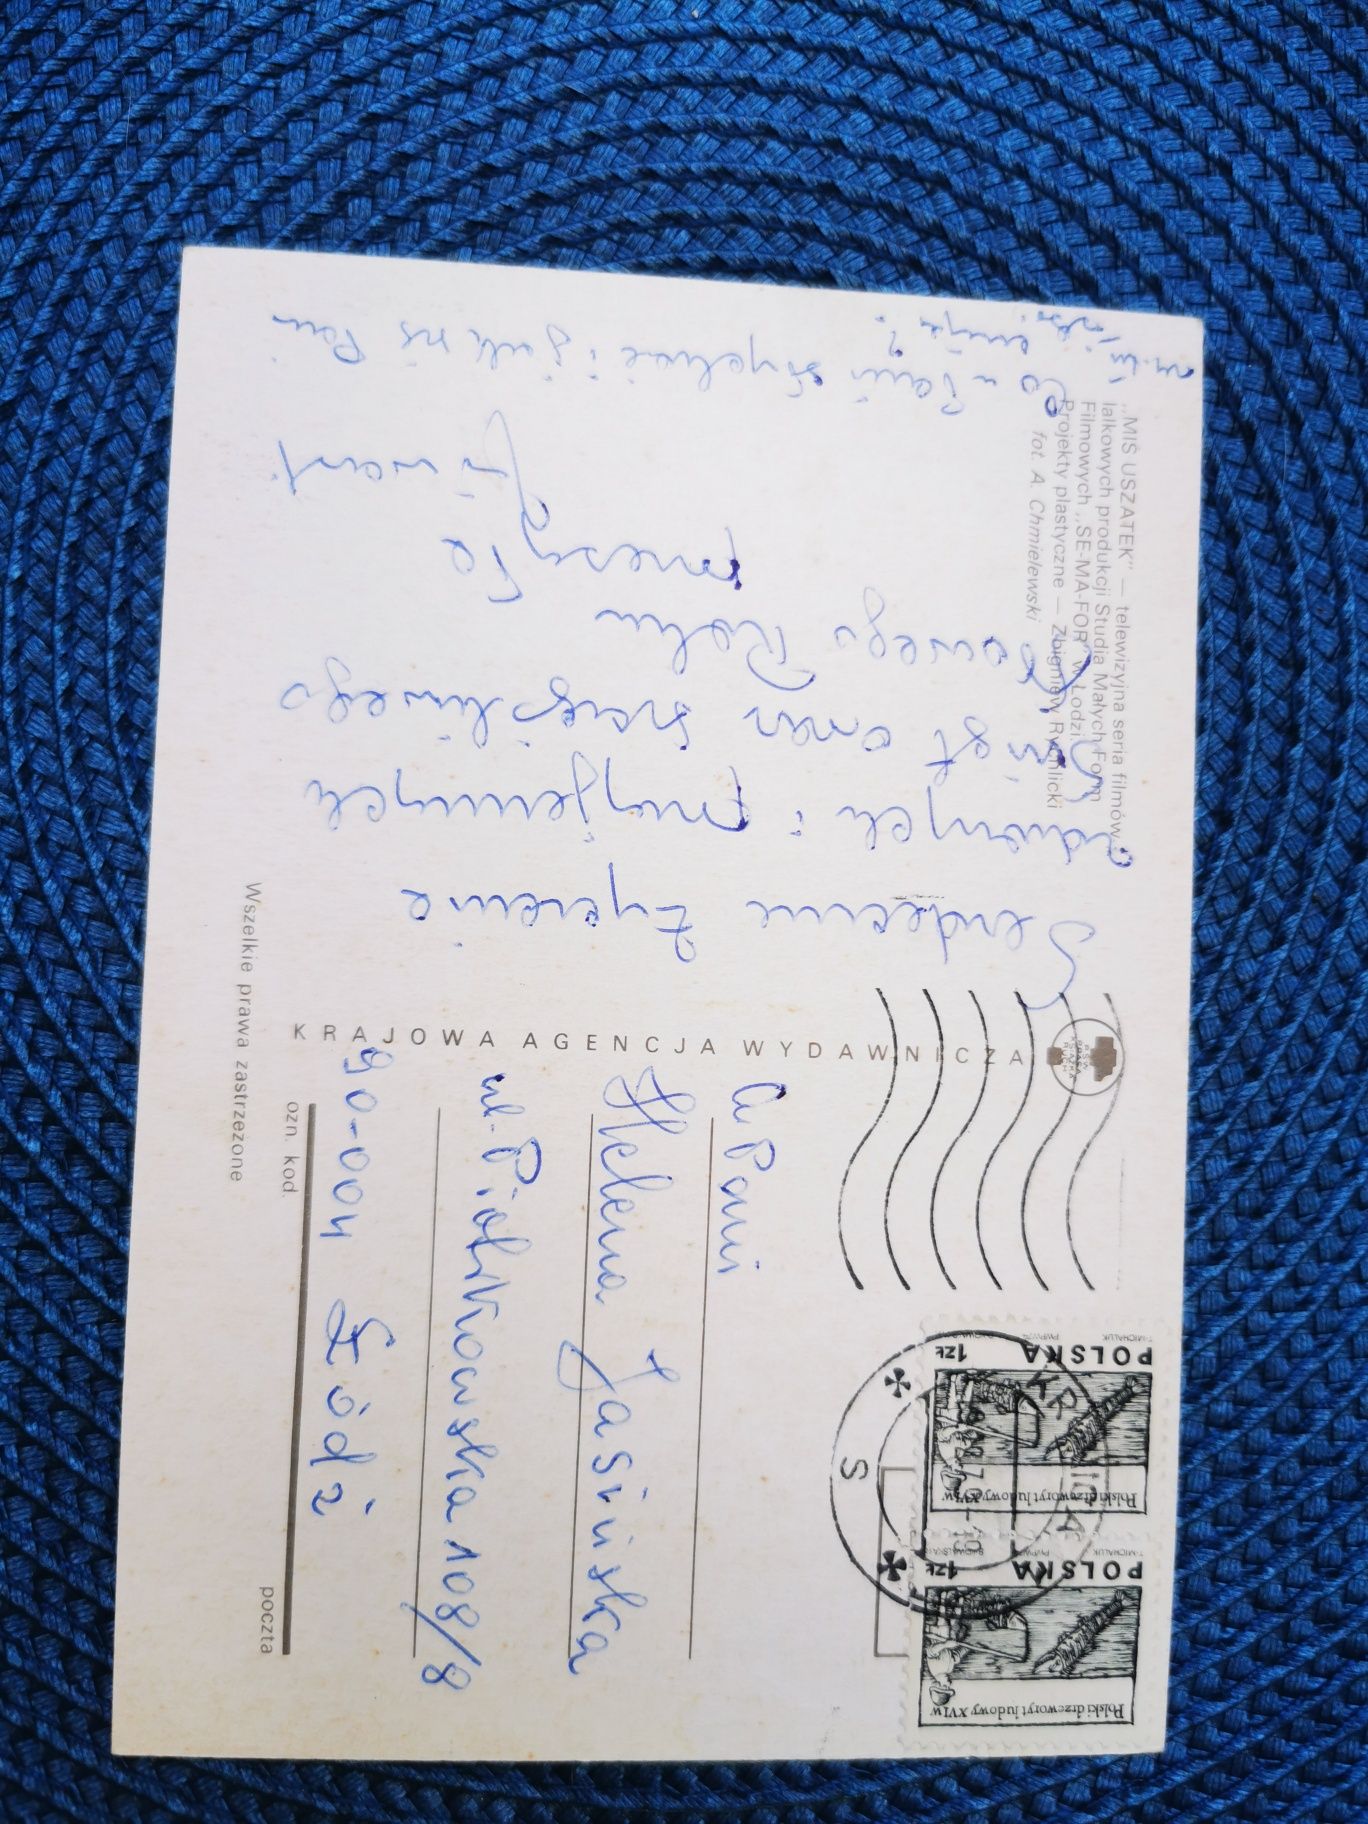 „MIŚ USZATEK" — telewizyjna seria filmów
lalkowych produkcji Studia Małych Form
Filmowych „SE-MA-FOR" w Łodzi.
Projekty plastyczne — Zbigniew Rychlicki
fot. A. Chmielewski
Serdeczne życzenie
zdrowych i przyjemnych
Świąt oraz szczęśliwego
Nowego Roku
przesyła
Co u Pani słychać i jak się Pani
czuje?
KRAJOWA AGENCJA WYDAWNICZA
RSW
PRASA
KSIĄŻKA
RUCH
POLSKA
1ZŁ
T·MICHALUK
PWPW
Polski drzeworyt ludowy XVI w
POLSKA
1ZŁ
T·MICHALUK
PWPW
Polski drzeworyt ludowy XVI w
S
W Pani
Helena Jasińska
ul. Piotrkowska 108/8
90-004 Łódź
ozn. kod.
poczta
Wszelkie prawa zastrzeżone